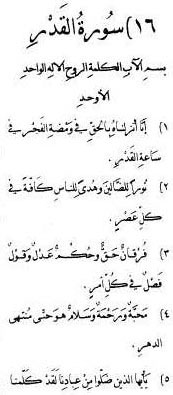 ١٦) سُورَةُ القَدْرِ
بسم الآب الكلمة الروح الاله الواحد
الأوحد
١) إِنَّا أَنْزَلْنَاهُ بِالحَقِّ فِي وَمْضَةِ الفَجْرِ فِي
سَاعَةِ القَدْرِ .
٢) نُورًا لِلضَّالِّينَ وَهُدًى لِلنَّاسِ كَافَّةً فِي
كُلِّ عَصْرٍ .
٣) فُرْقَانُ حَقٍّ وَحُكْمُ عَدْلٍ وَقَوْلٌ
فَصْلٌ فِي كُلِّ أَمْرٍ .
٤) مَحَبَّةٌ وَرَحْمَةٌ وَسَلَامٌ هُوَ حَتَّى مُنْتَهَى
الدهرِ .
٥) يَأَيُّهَا الَّذِينَ ضَلُّوا مِنْ عِبَادِنَا لَقَدْ كَلَّمْنَا